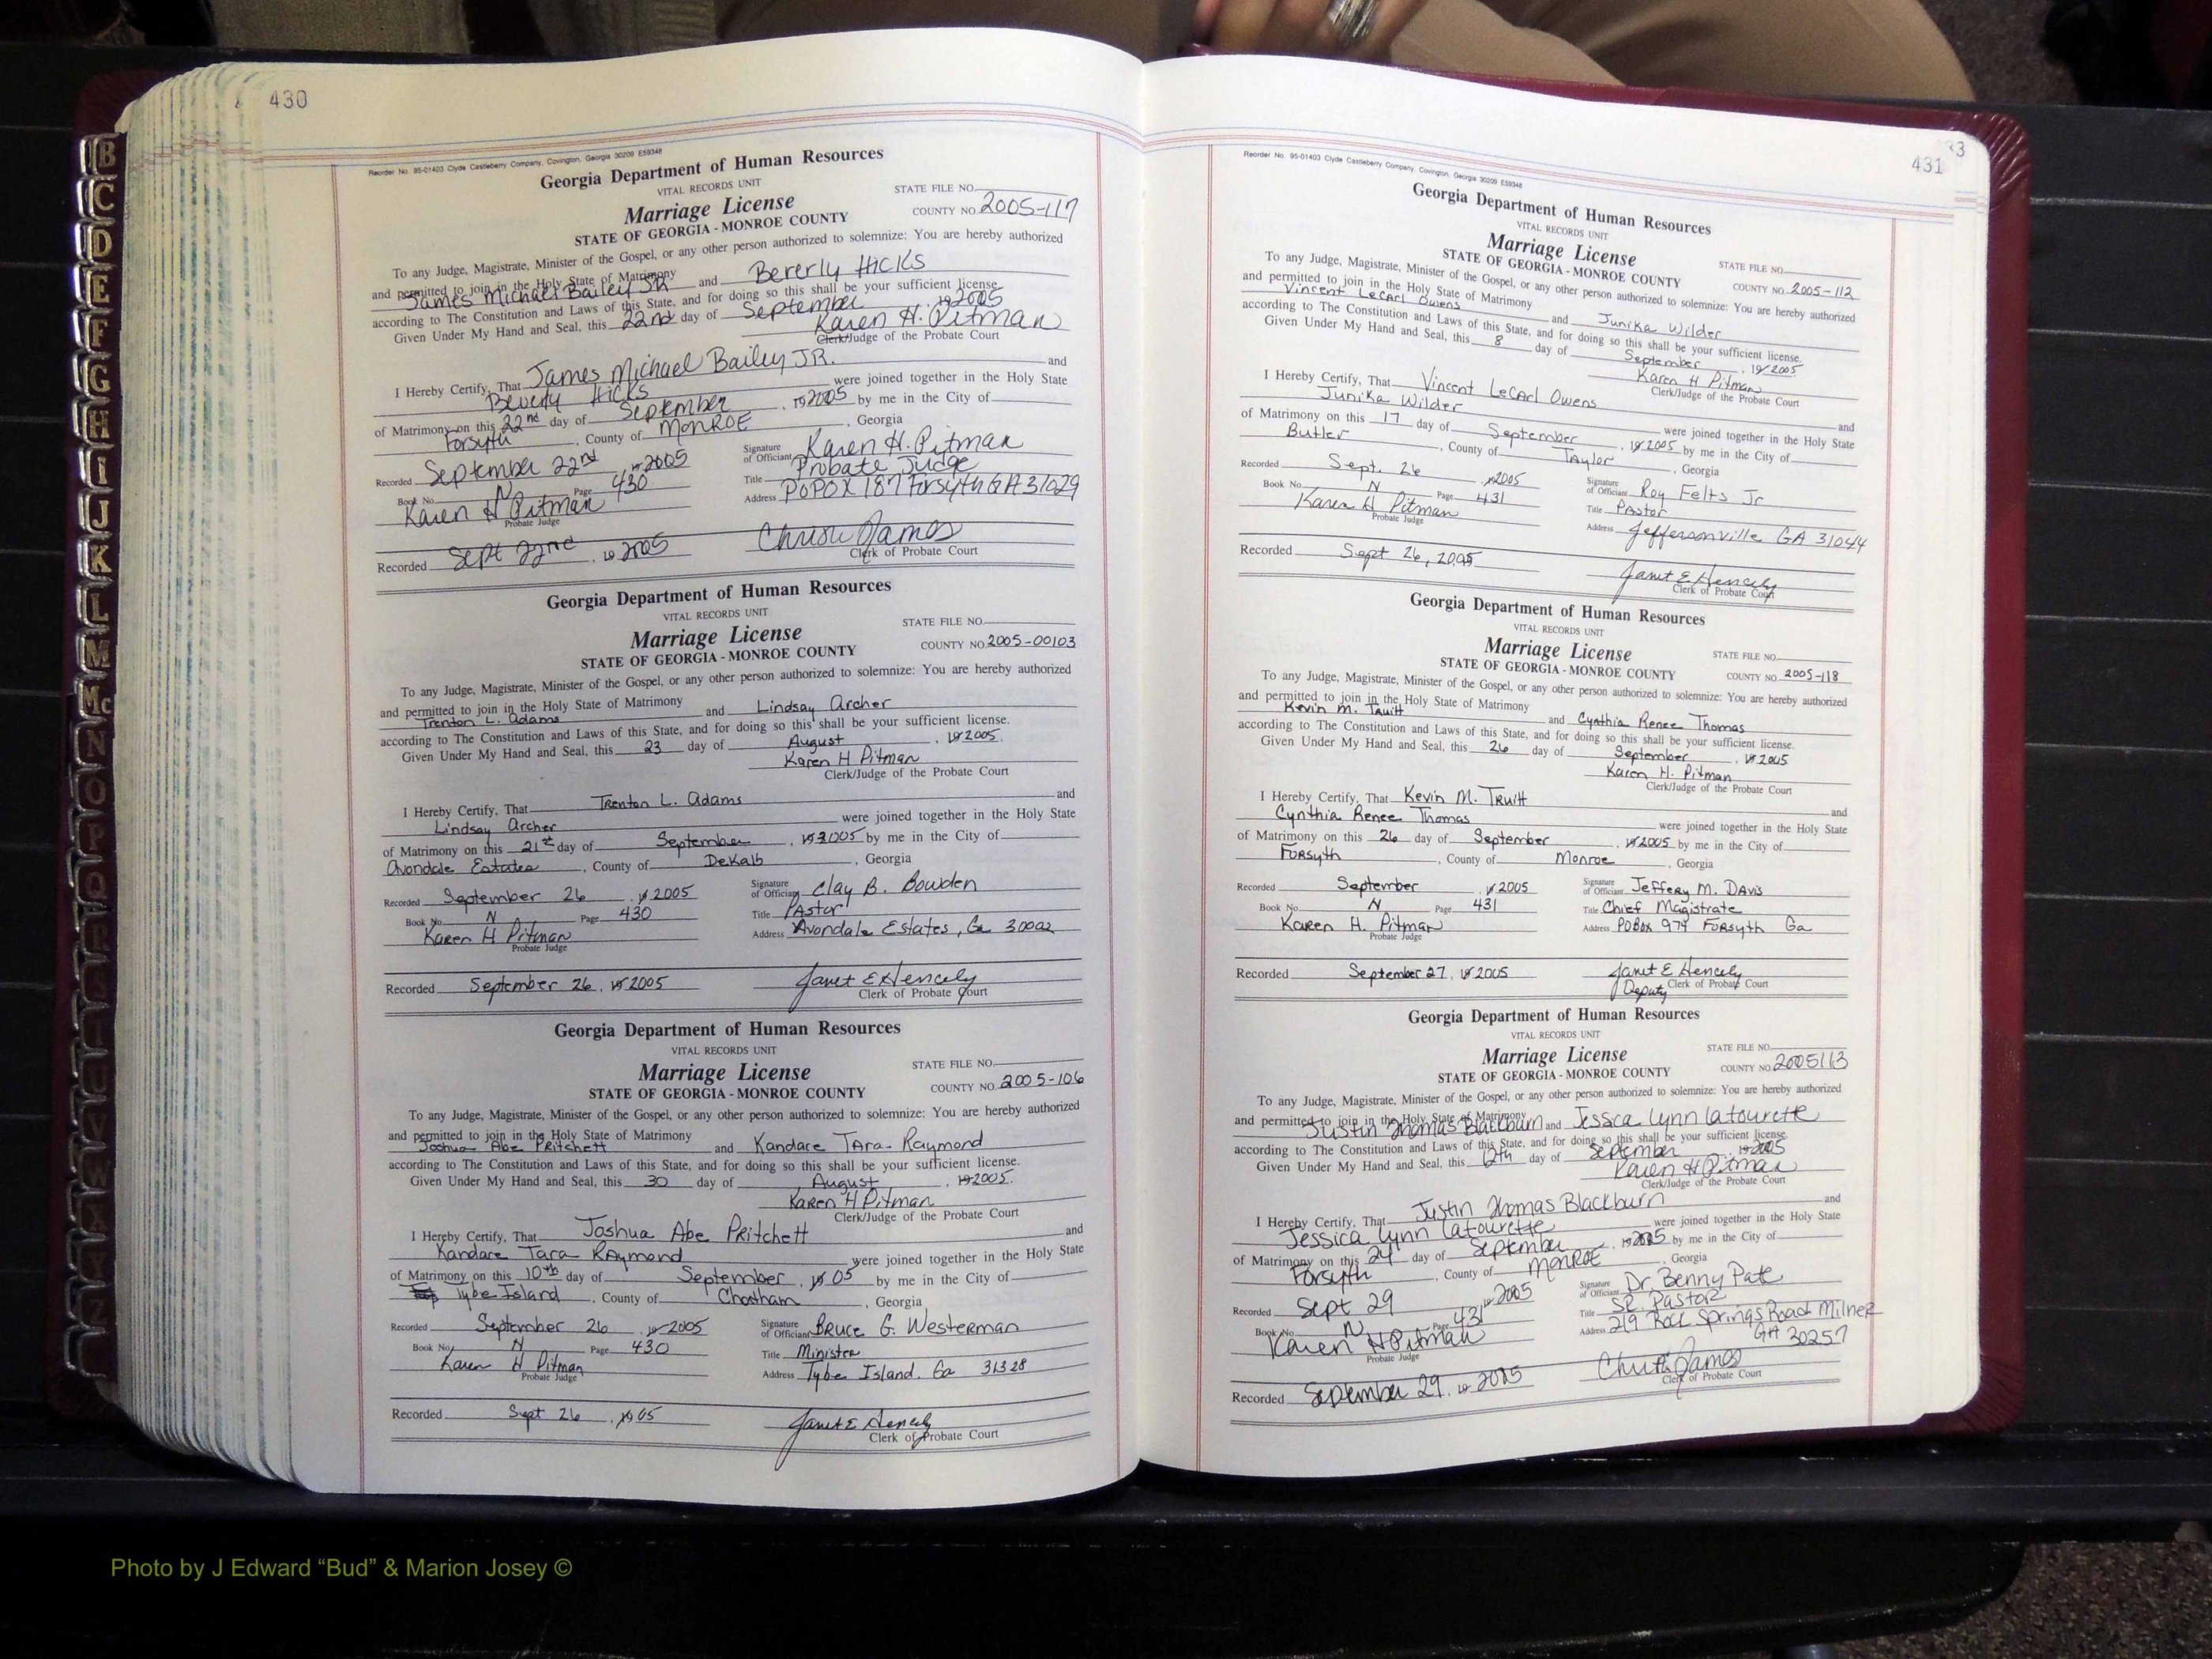 430
Reorder No. 95-01403 Clyde Castleberry Company, Covington, Georgia 30209 E59348
Georgia Department of Human Resources
VITAL RECORDS UNIT
STATE FILE NO.
Marriage License
COUNTY NO. 2005-117
STATE OF GEORGIA - MONROE COUNTY
To any Judge, Magistrate, Minister of the Gospel, or any other person authorized to solemnize: You are hereby authorized
and permitted to join in the Holy State of Matrimony
James Michael Bailey JR and Beverly Hicks
according to The Constitution and Laws of this State, and for doing so this shall be your sufficient license.
Given Under My Hand and Seal, this 22nd day of September, 19 2005
Karen H. Pitman
Clerk/Judge of the Probate Court
I Hereby Certify, That James Michael Bailey JR. and
Beverly Hicks were joined together in the Holy State
of Matrimony on this 22nd day of September, 19 2005 by me in the City of
Forsyth, County of MONROE, Georgia
Recorded September 22nd, 19 2005
Book No. N Page 430
Karen H Pitman
Probate Judge
Signature of Officiant Karen H. Pitman
Title Probate Judge
Address PO POX 187 Forsyth GA 31029
Recorded Sept 22nd, 19 2005
Clerk of Probate Court
Georgia Department of Human Resources
VITAL RECORDS UNIT
STATE FILE NO.
Marriage License
COUNTY NO. 2005-00103
STATE OF GEORGIA - MONROE COUNTY
To any Judge, Magistrate, Minister of the Gospel, or any other person authorized to solemnize: You are hereby authorized
and permitted to join in the Holy State of Matrimony
Trenton L. Adams and Lindsay Archer
according to The Constitution and Laws of this State, and for doing so this shall be your sufficient license.
Given Under My Hand and Seal, this 23 day of August, 19 2005.
Karen H Pitman
Clerk/Judge of the Probate Court
I Hereby Certify, That Trenton L. Adams and
Lindsay Archer were joined together in the Holy State
of Matrimony on this 21st day of September, 19 2005 by me in the City of
Avondale Estates, County of DeKalb, Georgia
Recorded September 26, 19 2005
Book No. N Page 430
Karen H Pitman
Probate Judge
Signature of Officiant Clay B. Bowden
Title Pastor
Address Avondale Estates, Ga 30002
Recorded September 26, 19 2005
Janet E Hencely
Clerk of Probate Court
Georgia Department of Human Resources
VITAL RECORDS UNIT
STATE FILE NO.
Marriage License
COUNTY NO. 2005-106
STATE OF GEORGIA - MONROE COUNTY
To any Judge, Magistrate, Minister of the Gospel, or any other person authorized to solemnize: You are hereby authorized
and permitted to join in the Holy State of Matrimony
Joshua Abe Pritchett and Kandace Tara Raymond
according to The Constitution and Laws of this State, and for doing so this shall be your sufficient license.
Given Under My Hand and Seal, this 30 day of August, 19 2005.
Karen H Pitman
Clerk/Judge of the Probate Court
I Hereby Certify, That Joshua Abe Pritchett and
Kandace Tara Raymond were joined together in the Holy State
of Matrimony on this 10th day of September, 19 05 by me in the City of
Tybe Island, County of Chatham, Georgia
Recorded September 26, 19 2005
Book No. N Page 430
Karen H Pitman
Probate Judge
Signature of Officiant Bruce G. Westerman
Title Minister
Address Tybe Island. Ga 31328
Recorded Sept 26, 19 05
Janet E Hencely
Clerk of Probate Court
431
3
Reorder No. 95-01403 Clyde Castleberry Company, Covington, Georgia 30209 E59348
Georgia Department of Human Resources
VITAL RECORDS UNIT
Marriage License
STATE FILE NO.
STATE OF GEORGIA - MONROE COUNTY
COUNTY NO. 2005-112
To any Judge, Magistrate, Minister of the Gospel, or any other person authorized to solemnize: You are hereby authorized
and permitted to join in the Holy State of Matrimony
Vincent LeCarl Owens and Junika Wilder
according to The Constitution and Laws of this State, and for doing so this shall be your sufficient license.
Given Under My Hand and Seal, this 8 day of September, 19 2005
Karen H Pitman
Clerk/Judge of the Probate Court
I Hereby Certify, That Vincent LeCarl Owens and
Junika Wilder were joined together in the Holy State
of Matrimony on this 17 day of September, 19 2005 by me in the City of
Butler, County of Taylor, Georgia
Recorded Sept. 26, 2005
Book No. N Page 431
Karen H Pitman
Probate Judge
Signature of Officiant Roy Felts Jr
Title Pastor
Address Jeffersonville GA 31044
Recorded Sept 26, 2005
Janet E Hencely
Clerk of Probate Court
Georgia Department of Human Resources
VITAL RECORDS UNIT
Marriage License
STATE FILE NO.
STATE OF GEORGIA - MONROE COUNTY
COUNTY NO. 2005-118
To any Judge, Magistrate, Minister of the Gospel, or any other person authorized to solemnize: You are hereby authorized
and permitted to join in the Holy State of Matrimony
Kevin M. Truitt and Cynthia Renee Thomas
according to The Constitution and Laws of this State, and for doing so this shall be your sufficient license.
Given Under My Hand and Seal, this 26 day of September, 19 2005
Karen H. Pitman
Clerk/Judge of the Probate Court
I Hereby Certify, That Kevin M. Truitt and
Cynthia Renee Thomas were joined together in the Holy State
of Matrimony on this 26 day of September, 19 2005 by me in the City of
Forsyth, County of Monroe, Georgia
Recorded September, 19 2005
Book No. N Page 431
Karen H. Pitman
Probate Judge
Signature of Officiant Jeffery M. Davis
Title Chief Magistrate
Address PO Box 974 Forsyth Ga
Recorded September 27, 19 2005
Janet E Hencely
Deputy Clerk of Probate Court
Georgia Department of Human Resources
VITAL RECORDS UNIT
Marriage License
STATE FILE NO.
STATE OF GEORGIA - MONROE COUNTY
COUNTY NO. 2005113
To any Judge, Magistrate, Minister of the Gospel, or any other person authorized to solemnize: You are hereby authorized
and permitted to join in the Holy State of Matrimony
Justin Thomas Blackburn and Jessica Lynn Latourette
according to The Constitution and Laws of this State, and for doing so this shall be your sufficient license.
Given Under My Hand and Seal, this 12th day of September, 19 2005
Karen H Pitman
Clerk/Judge of the Probate Court
I Hereby Certify, That Justin Thomas Blackburn and
Jessica Lynn Latourette were joined together in the Holy State
of Matrimony on this 24 day of September, 19 2005 by me in the City of
Forsyth, County of MONROE, Georgia
Recorded Sept 29, 19 2005
Book No. N Page 431
Karen H Pitman
Probate Judge
Signature of Officiant Dr. Benny Pate
Title SR. Pastor
Address 219 Rock Springs Road Milner
GA 30257
Clerk of Probate Court
Recorded September 29, 19 2005
B
C
D
E
F
G
H
I
J
K
L
M
Mc
N
O
P
Q
R
Photo by J Edward “Bud” & Marion Josey ©